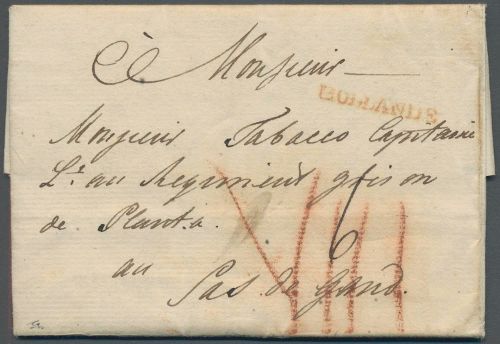 à Monsieur
HOLLANDE
Monsieur Tabacco Capitaine
Lt. au Regiment grison
de Planta.
au
Sas de Gand.
6
VIII